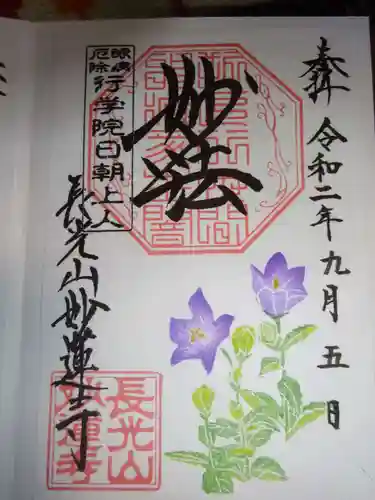 奉拝
令和二年九月五日
妙法
頭痛
厄除
行学院日朝上人
長光山妙蓮寺
長光山
妙蓮寺